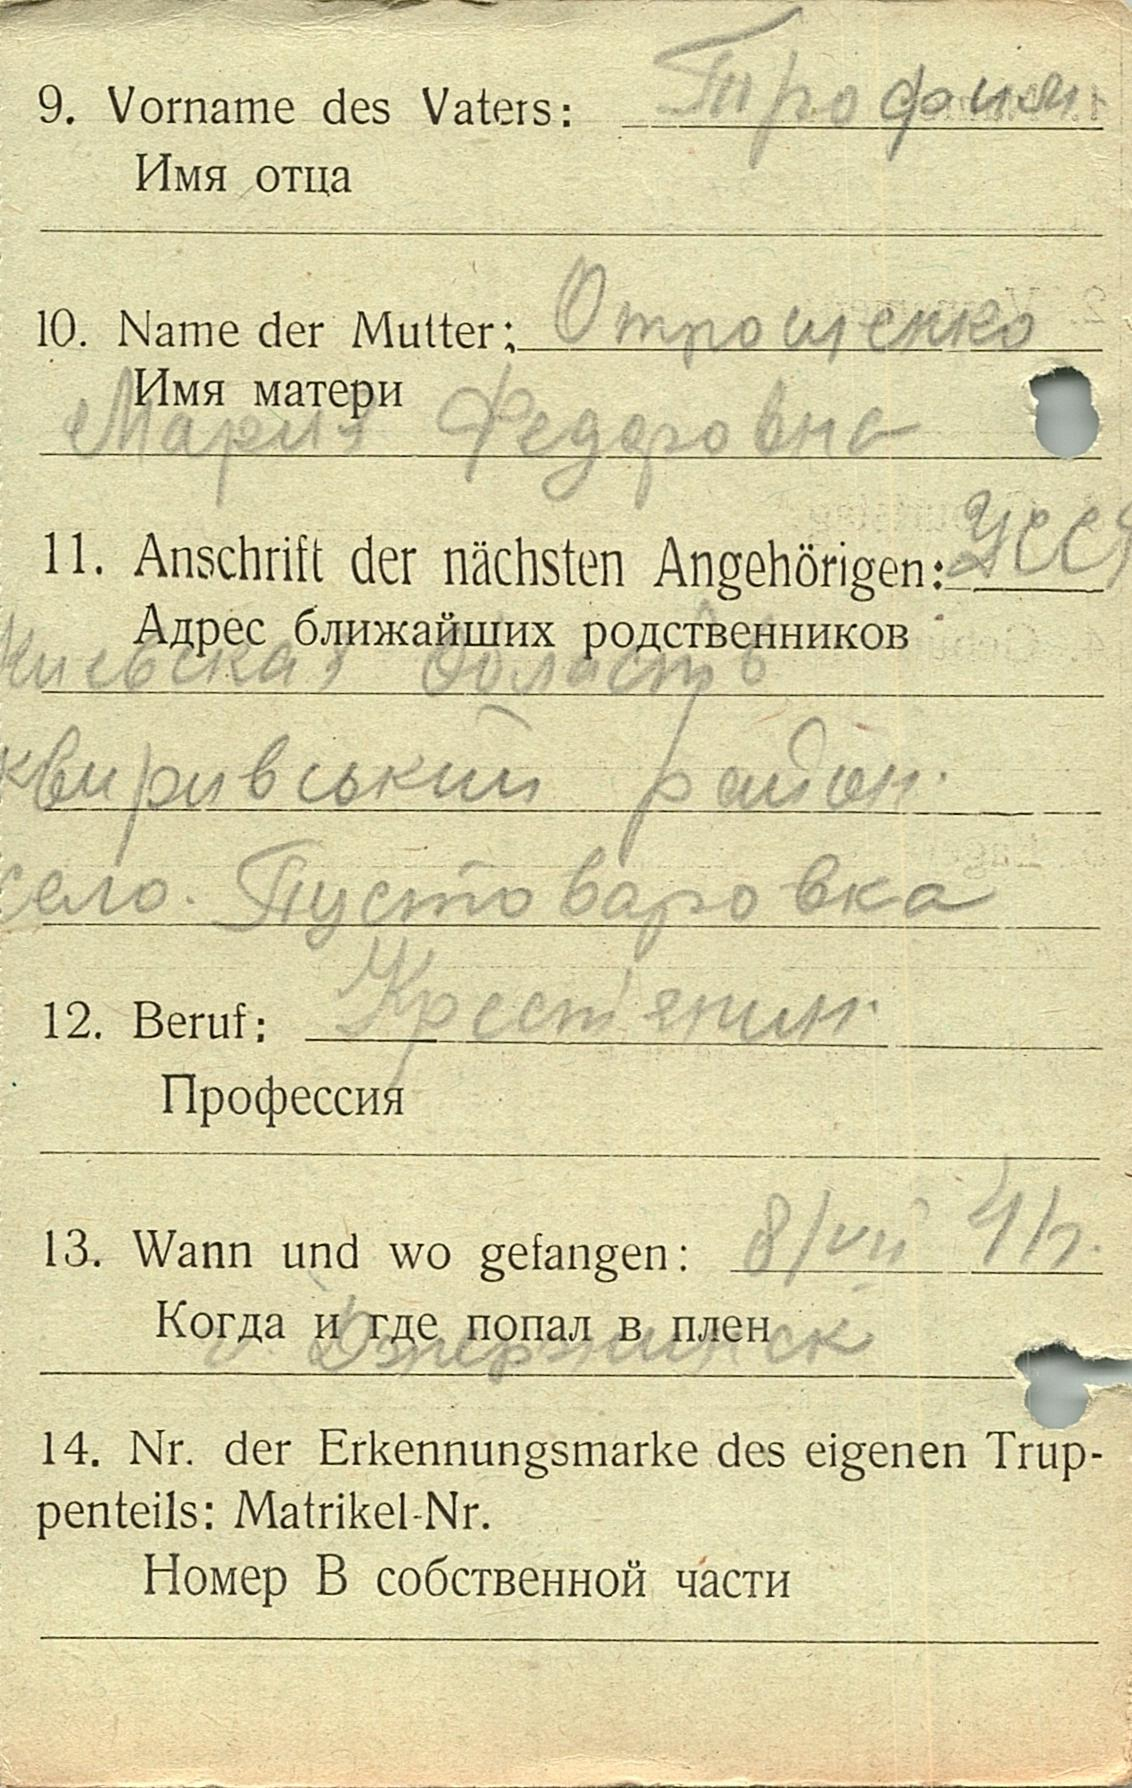 9. Vorname des Vaters: Трофим
Имя отца
10. Name der Mutter: Отрошенко
Имя матери
Мария Федоровна
11. Anschrift der nächsten Angehörigen: УССР
Адрес ближайших родственников
Киевская область
квиривський район.
село. Пустоваровка
12. Beruf: Крест'янин.
Профессия
13. Wann und wo gefangen: 8/VII 41
Когда и где попал в плен
14. Nr. der Erkennungsmarke des eigenen Trup-
penteils: Matrikel-Nr.
Номер В собственной части